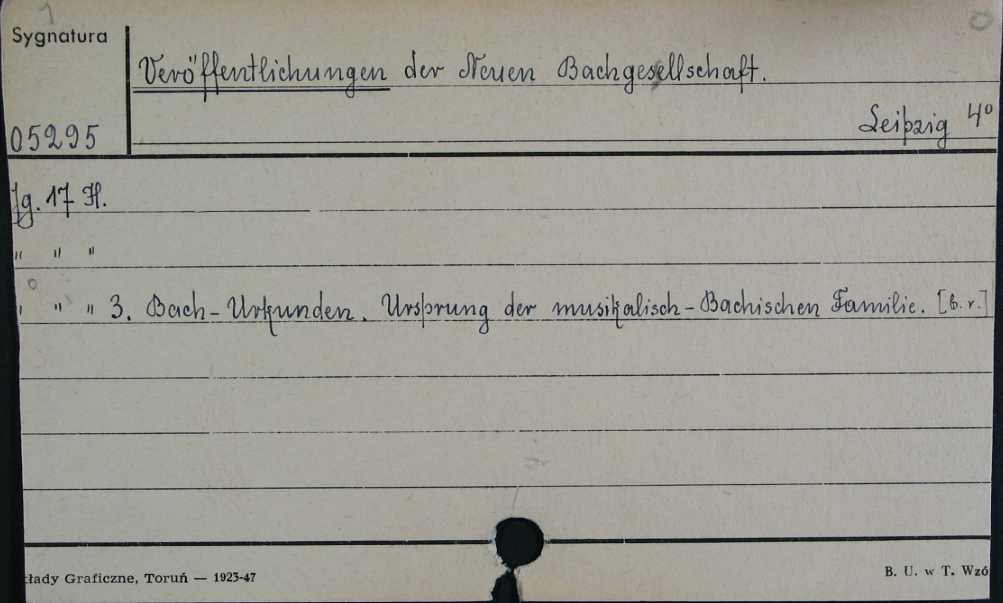 Sygnatura
Veröffentlichungen der Neuen Bachgesellschaft.
05295
Leipzig 4º
Jg. 17 H.
" " "
" " " 3. Bach-Urkunden. Ursprung der musikalisch-Bachischen Familie. [b. r.]
kłady Graficzne, Toruń — 1923-47
B. U. w T. Wzó